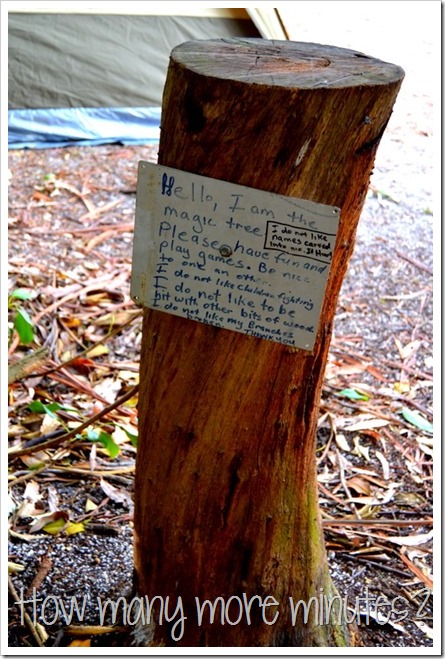 Hello, I am the
magic tree
I do not like
names carved
into me. It Hurts
Please have fun and
play games. Be nice
to one an other.
I do not like children fighting
I do not like to be
hit with other bits of wood
I do not like my Branches
Thank you
How many more minutes?